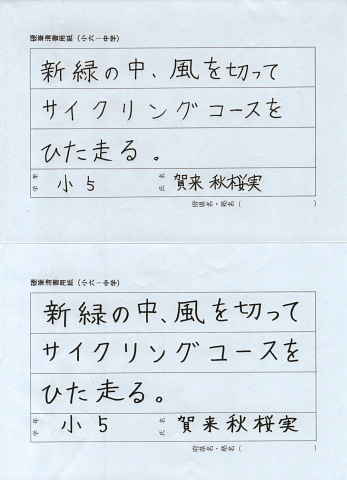 硬筆清書用紙（小六〜中学）
新緑の中、風を切って
サイクリングコースを
ひた走る。
学年 小5 氏名 賀来秋桜実
府県名・県名（ ）
硬筆清書用紙（小六〜中学）
新緑の中、風を切って
サイクリングコースを
ひた走る。
学年 小5 氏名 賀来秋桜実
府県名・県名（ ）